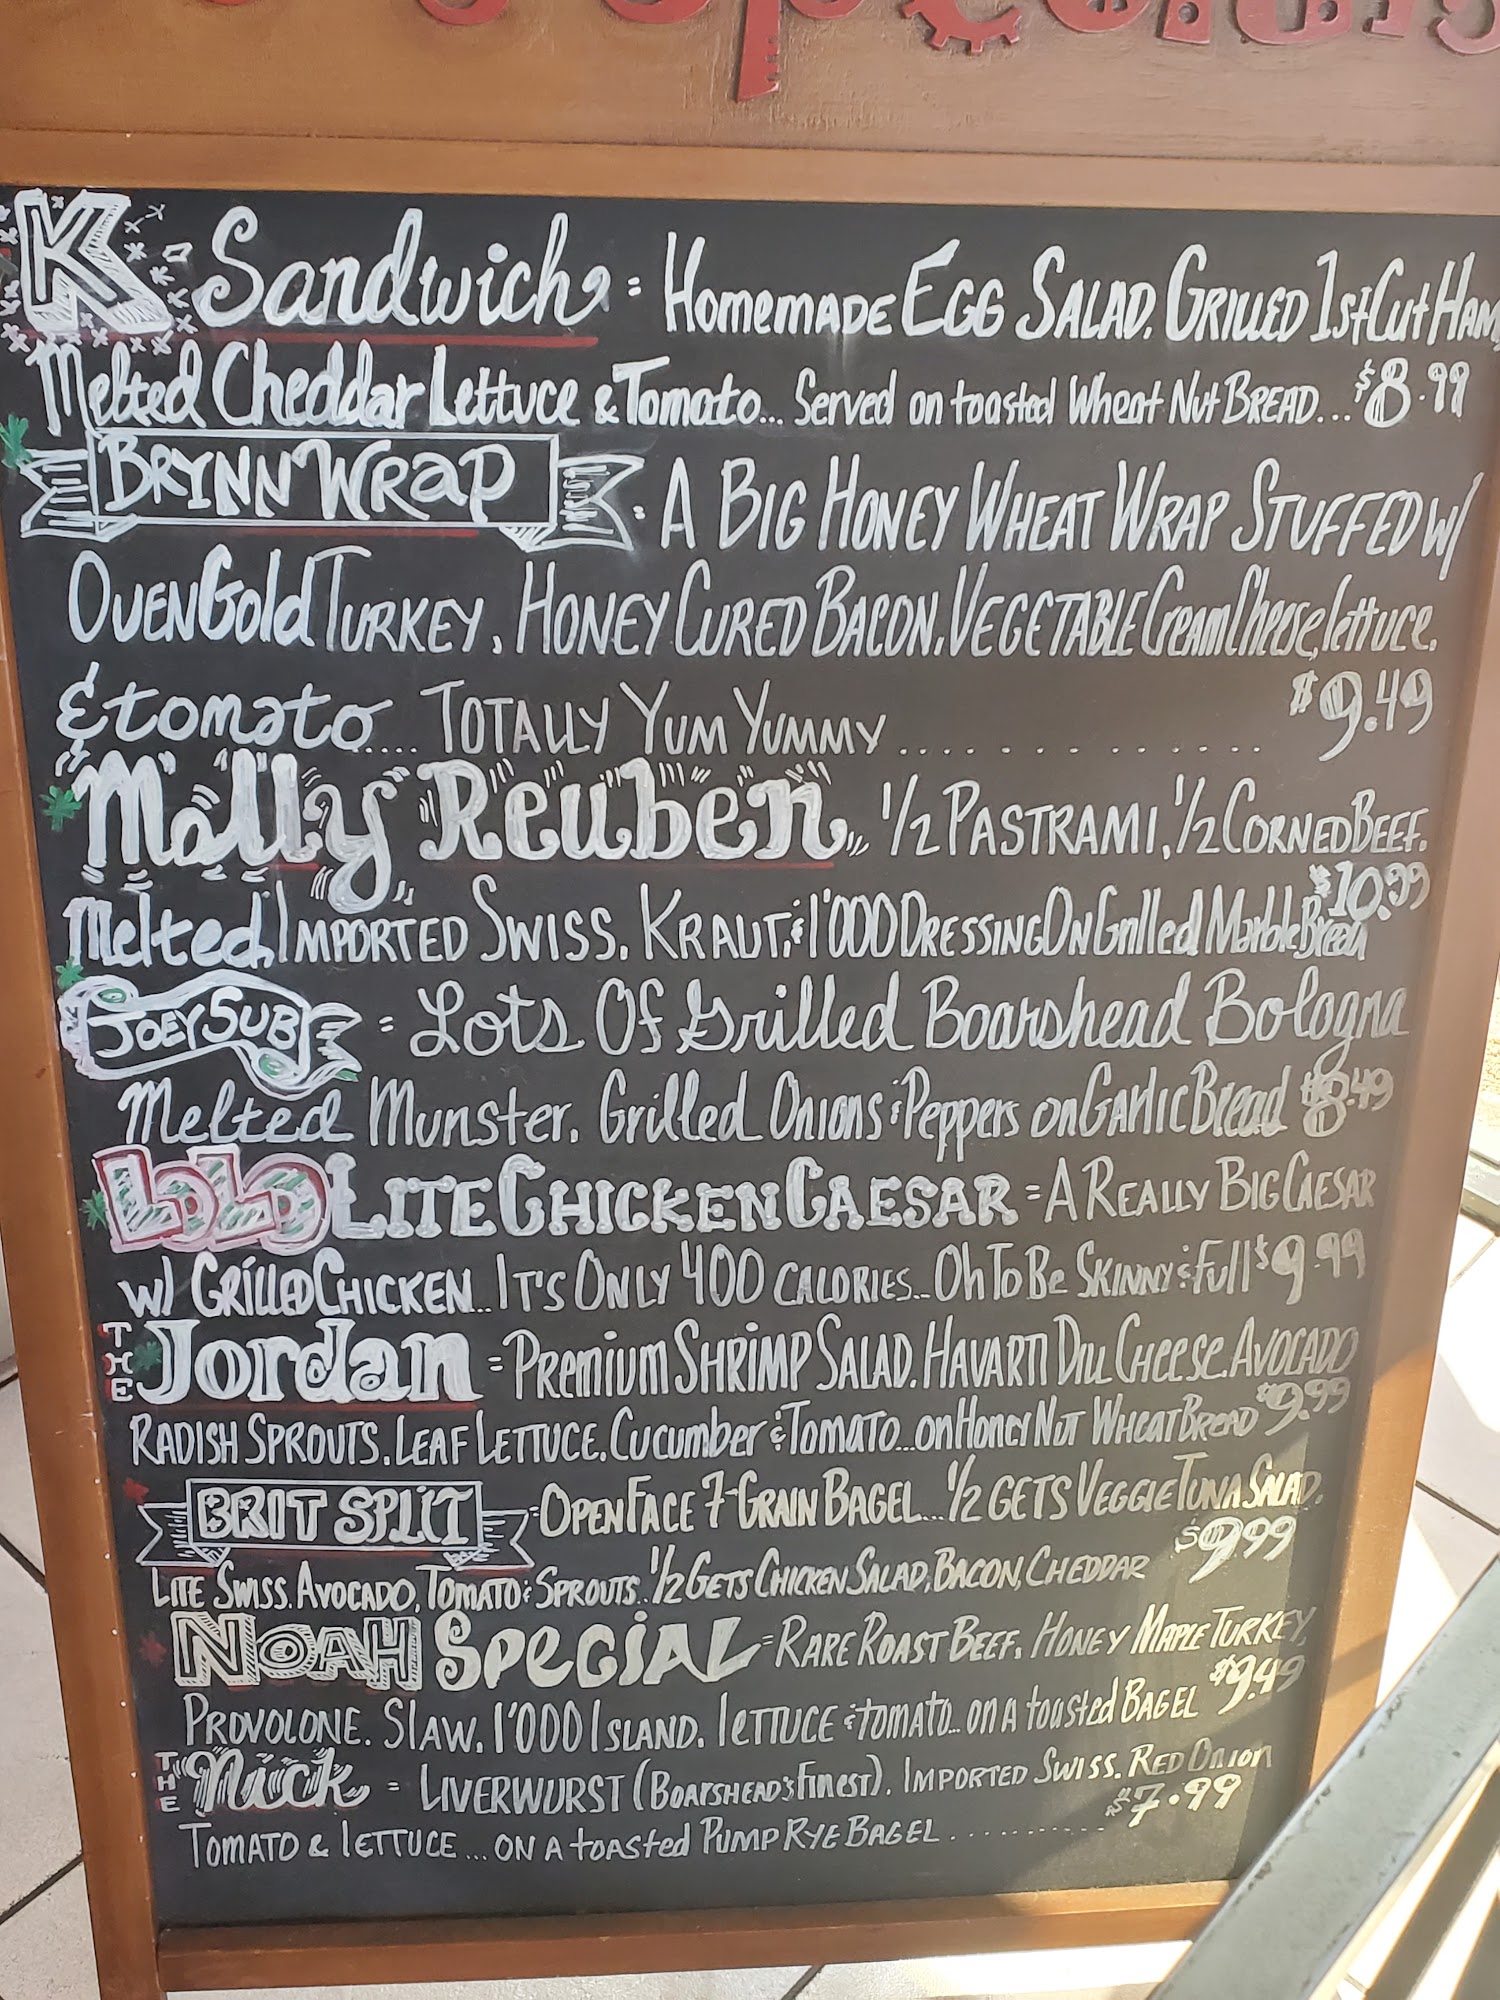 Specials
K Sandwich = Homemade Egg Salad, Grilled 1st Cut Ham,
Melted Cheddar Lettuce & Tomato... Served on toasted Wheat Nut Bread... $8.99
Brynn Wrap = A Big Honey Wheat Wrap Stuffed w/
OvenGold Turkey, Honey Cured Bacon, Vegetable Cream Cheese, lettuce,
& tomato..... Totally Yum Yummy .............. $9.49
Molly Reuben 1/2 Pastrami, 1/2 Corned Beef,
Melted Imported Swiss, Kraut, & 1'000 Dressing On Grilled Marble Bread $10.99
Joey Sub = Lots Of Grilled Boarshead Bologna
Melted Munster, Grilled Onions & Peppers on Garlic Bread $8.49
LoLo Lite Chicken Caesar = A Really Big Caesar
w/ Grilled Chicken... It's Only 400 calories... Oh To Be Skinny & Full $9.99
The Jordan = Premium Shrimp Salad, Havarti Dill Cheese, Avocado
Radish Sprouts, Leaf Lettuce, Cucumber & Tomato... on Honey Nut Wheat Bread $9.99
Brit Split = Open Face 7-Grain Bagel... 1/2 gets Veggie Tuna Salad,
Lite Swiss, Avocado, Tomato & Sprouts. 1/2 Gets Chicken Salad, Bacon, Cheddar $9.99
Noah Special = Rare Roast Beef, Honey Maple Turkey,
Provolone, Slaw, 1'000 Island, lettuce & tomato... on a toasted Bagel $9.49
The Nick = Liverwurst (Boarshead's Finest), Imported Swiss, Red Onion
Tomato & lettuce... on a toasted Pump Rye Bagel .......... $7.99